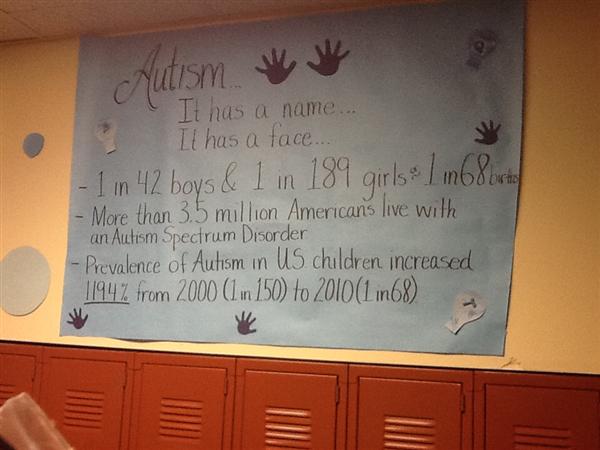 Autism...
It has a name...
It has a face...
- 1 in 42 boys & 1 in 189 girls & 1 in 68 births
- More than 3.5 million Americans live with
an Autism Spectrum Disorder
- Prevalence of Autism in US children increased
119.4% from 2000 (1 in 150) to 2010 (1 in 68)